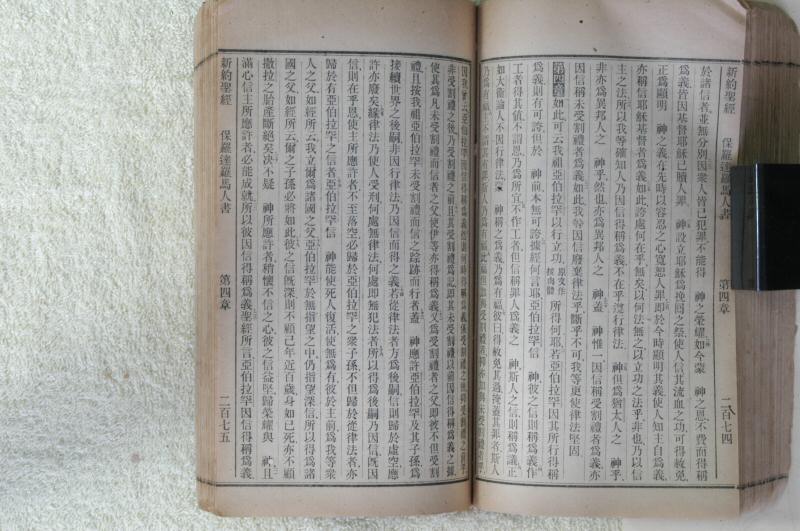 新約聖經 保羅達羅馬人書 第四章 二百七十四
於諸信者、並無分別、因衆人皆已犯罪、不能得 神之榮耀、如今蒙 神之恩、不費而得稱
爲義、皆因基督耶穌已贖人罪 神設立耶穌爲挽回之祭、使人信其流血之功、可得赦免
正爲顯明 神之義、在先時以容忍之心寬恕人罪、即於今時顯明其義、使人知主自爲義、
亦稱信耶穌基督者爲義、如此誇處何在乎、無矣、以何法無之、以立功之法乎、非也、乃以信
主之法、所以我等確知人乃因信得稱爲義、不在乎遵行律法 神但爲猶太人之 神乎、
非亦爲異邦人之 神乎、然也、亦爲異邦人之 神、蓋 神惟一、因信稱受割禮者爲義、亦
因信稱未受割禮者爲義、如此我等因信廢棄律法乎、斷乎不可、我等更使律法堅固
第四章 如此可云我祖亞伯拉罕以行立功、原文作按肉體 所得何耶、若亞伯拉罕因其所行得稱
爲義、則有可誇、但於 神前本無可誇、據經何言耶、亞伯拉罕信 神、彼之信則稱爲義、作
工者得其値、不謂恩、乃爲所宜、不作工者、但信稱罪人爲義之 神、斯人之信則稱爲義、正
如大衛論人不因行律法、 神稱之爲義者、乃爲有福、彼曰得赦免其過、掩蓋其罪者、斯人
非受割禮之後、乃受割禮之前、且其受割禮爲記、即其未受割禮以前因信得稱爲義之據、
使其爲凡未受割禮而信者之父、使伊等亦得稱爲義、又爲受割禮者之父、即彼不但受割
禮、且按我祖亞伯拉罕未受割禮而信之踪跡而行者、蓋 神應許亞伯拉罕及其子孫、爲
接續世界之後嗣、非因行律法、乃因信而得之義、若從律法者方爲後嗣、信則歸於虛空、應
許亦廢矣、緣律法乃使人受刑、何處無律法、何處即無犯法者、所以得爲後嗣、乃因信、既因
信、則在乎恩、使主所應許者、不至落空、必歸於亞伯拉罕之衆子孫、不但歸於從律法者、亦
歸於有亞伯拉罕之信者、亞伯拉罕信 神能使死人復活、使無爲有、彼於主前爲我等衆
人之父、如經所云、我立爾爲諸國之父、亞伯拉罕於無指望之中、仍指望深信、所以得爲諸
國之父、如經所云、爾之子孫必將如此、彼之信既深、則不顧己年近百歲、身如已死、亦不顧
撒拉之胎產斷絕矣、決不疑 神所應許者、稍懷不信之心、彼之信益堅、歸榮耀與 神、且
滿心信主所應許者、必能成就、所以彼因信得稱爲義、聖經所言、亞伯拉罕因信得稱爲義、
新約聖經 保羅達羅馬人書 第四章 二百七五